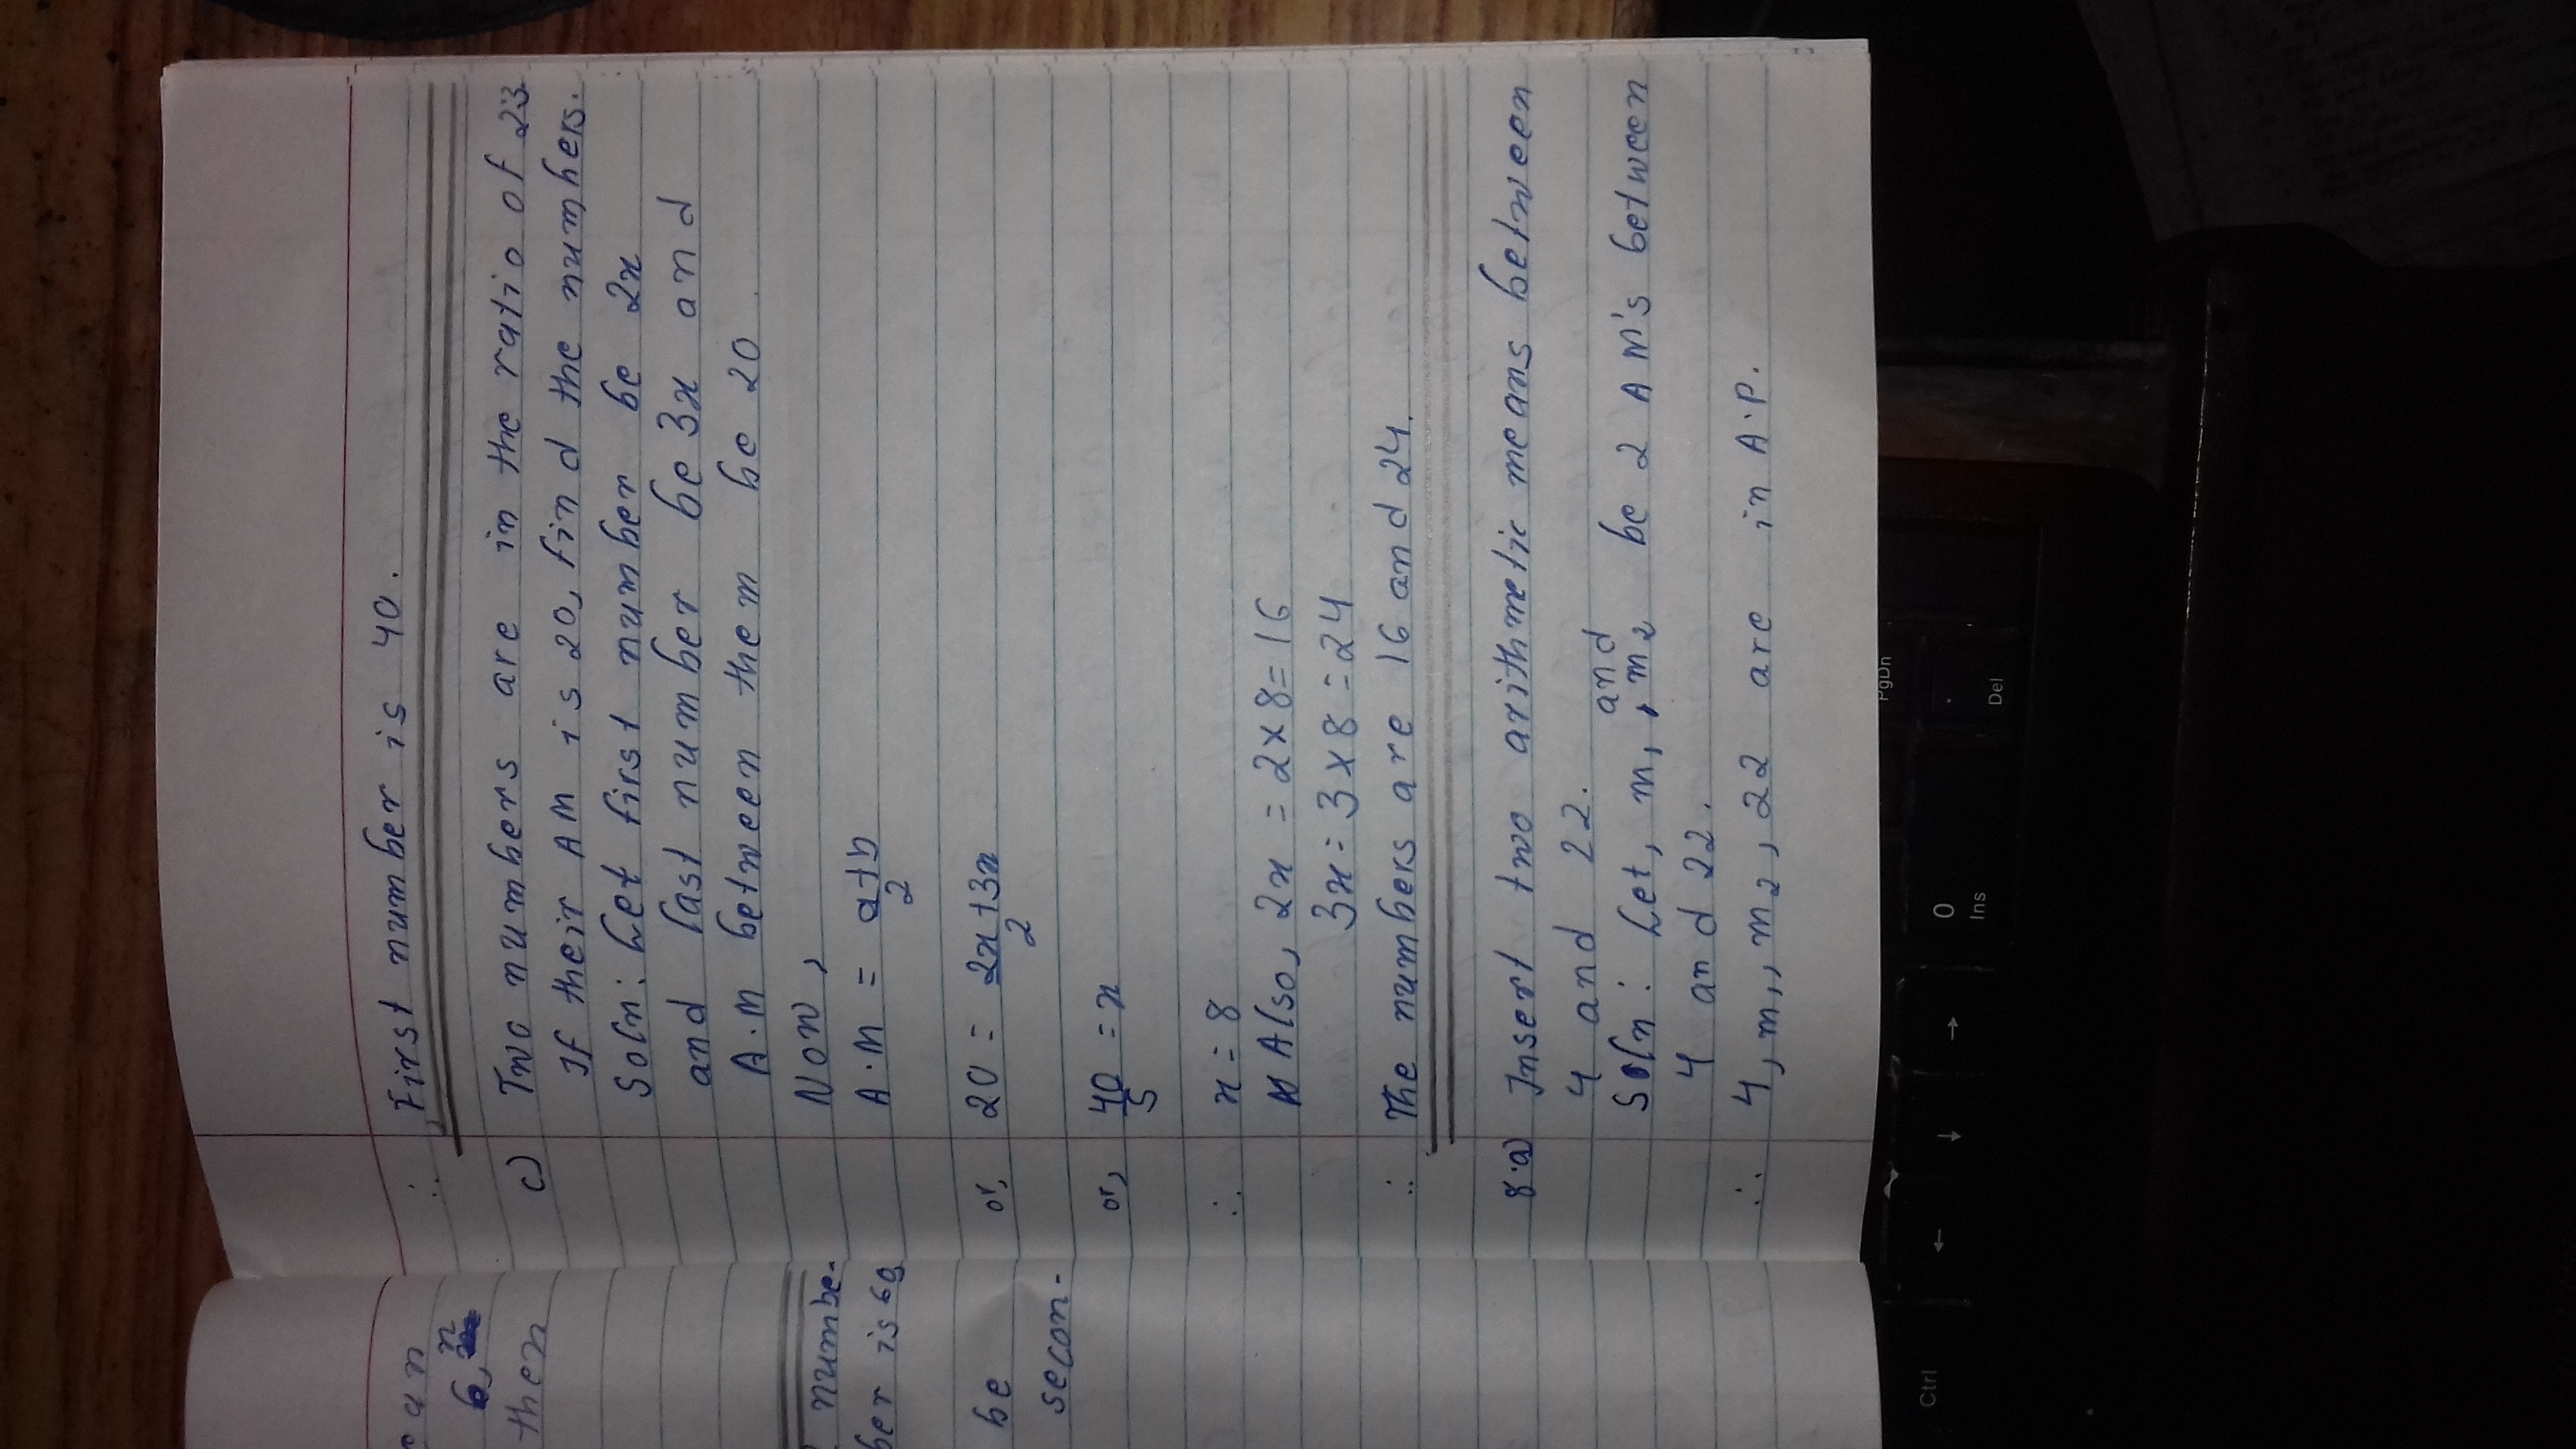 ∴ First number is 40.
c) Two numbers are in the ratio of 2:3
If their AM is 20, find the numbers.
Soln: Let first number be 2x
and last number be 3x and
A.M between them be 20.
Now,
A.M = a+b/2
or, 20 = 2x+3x/2
or, 40/5 = x
∴ x = 8
Also, 2x = 2×8=16
3x = 3×8 = 24
∴ The numbers are 16 and 24.
8.a) Insert two arithmetic means between
4 and 22.
Soln: Let, m₁, and m₂ be 2 AM's between
4 and 22.
∴ 4, m₁, m₂, 22 are in A.P.
an
n
then
numbe.
ber is 60
be
secon-
PgDn
.
Del
0
Ins
→
↓
←
Ctrl